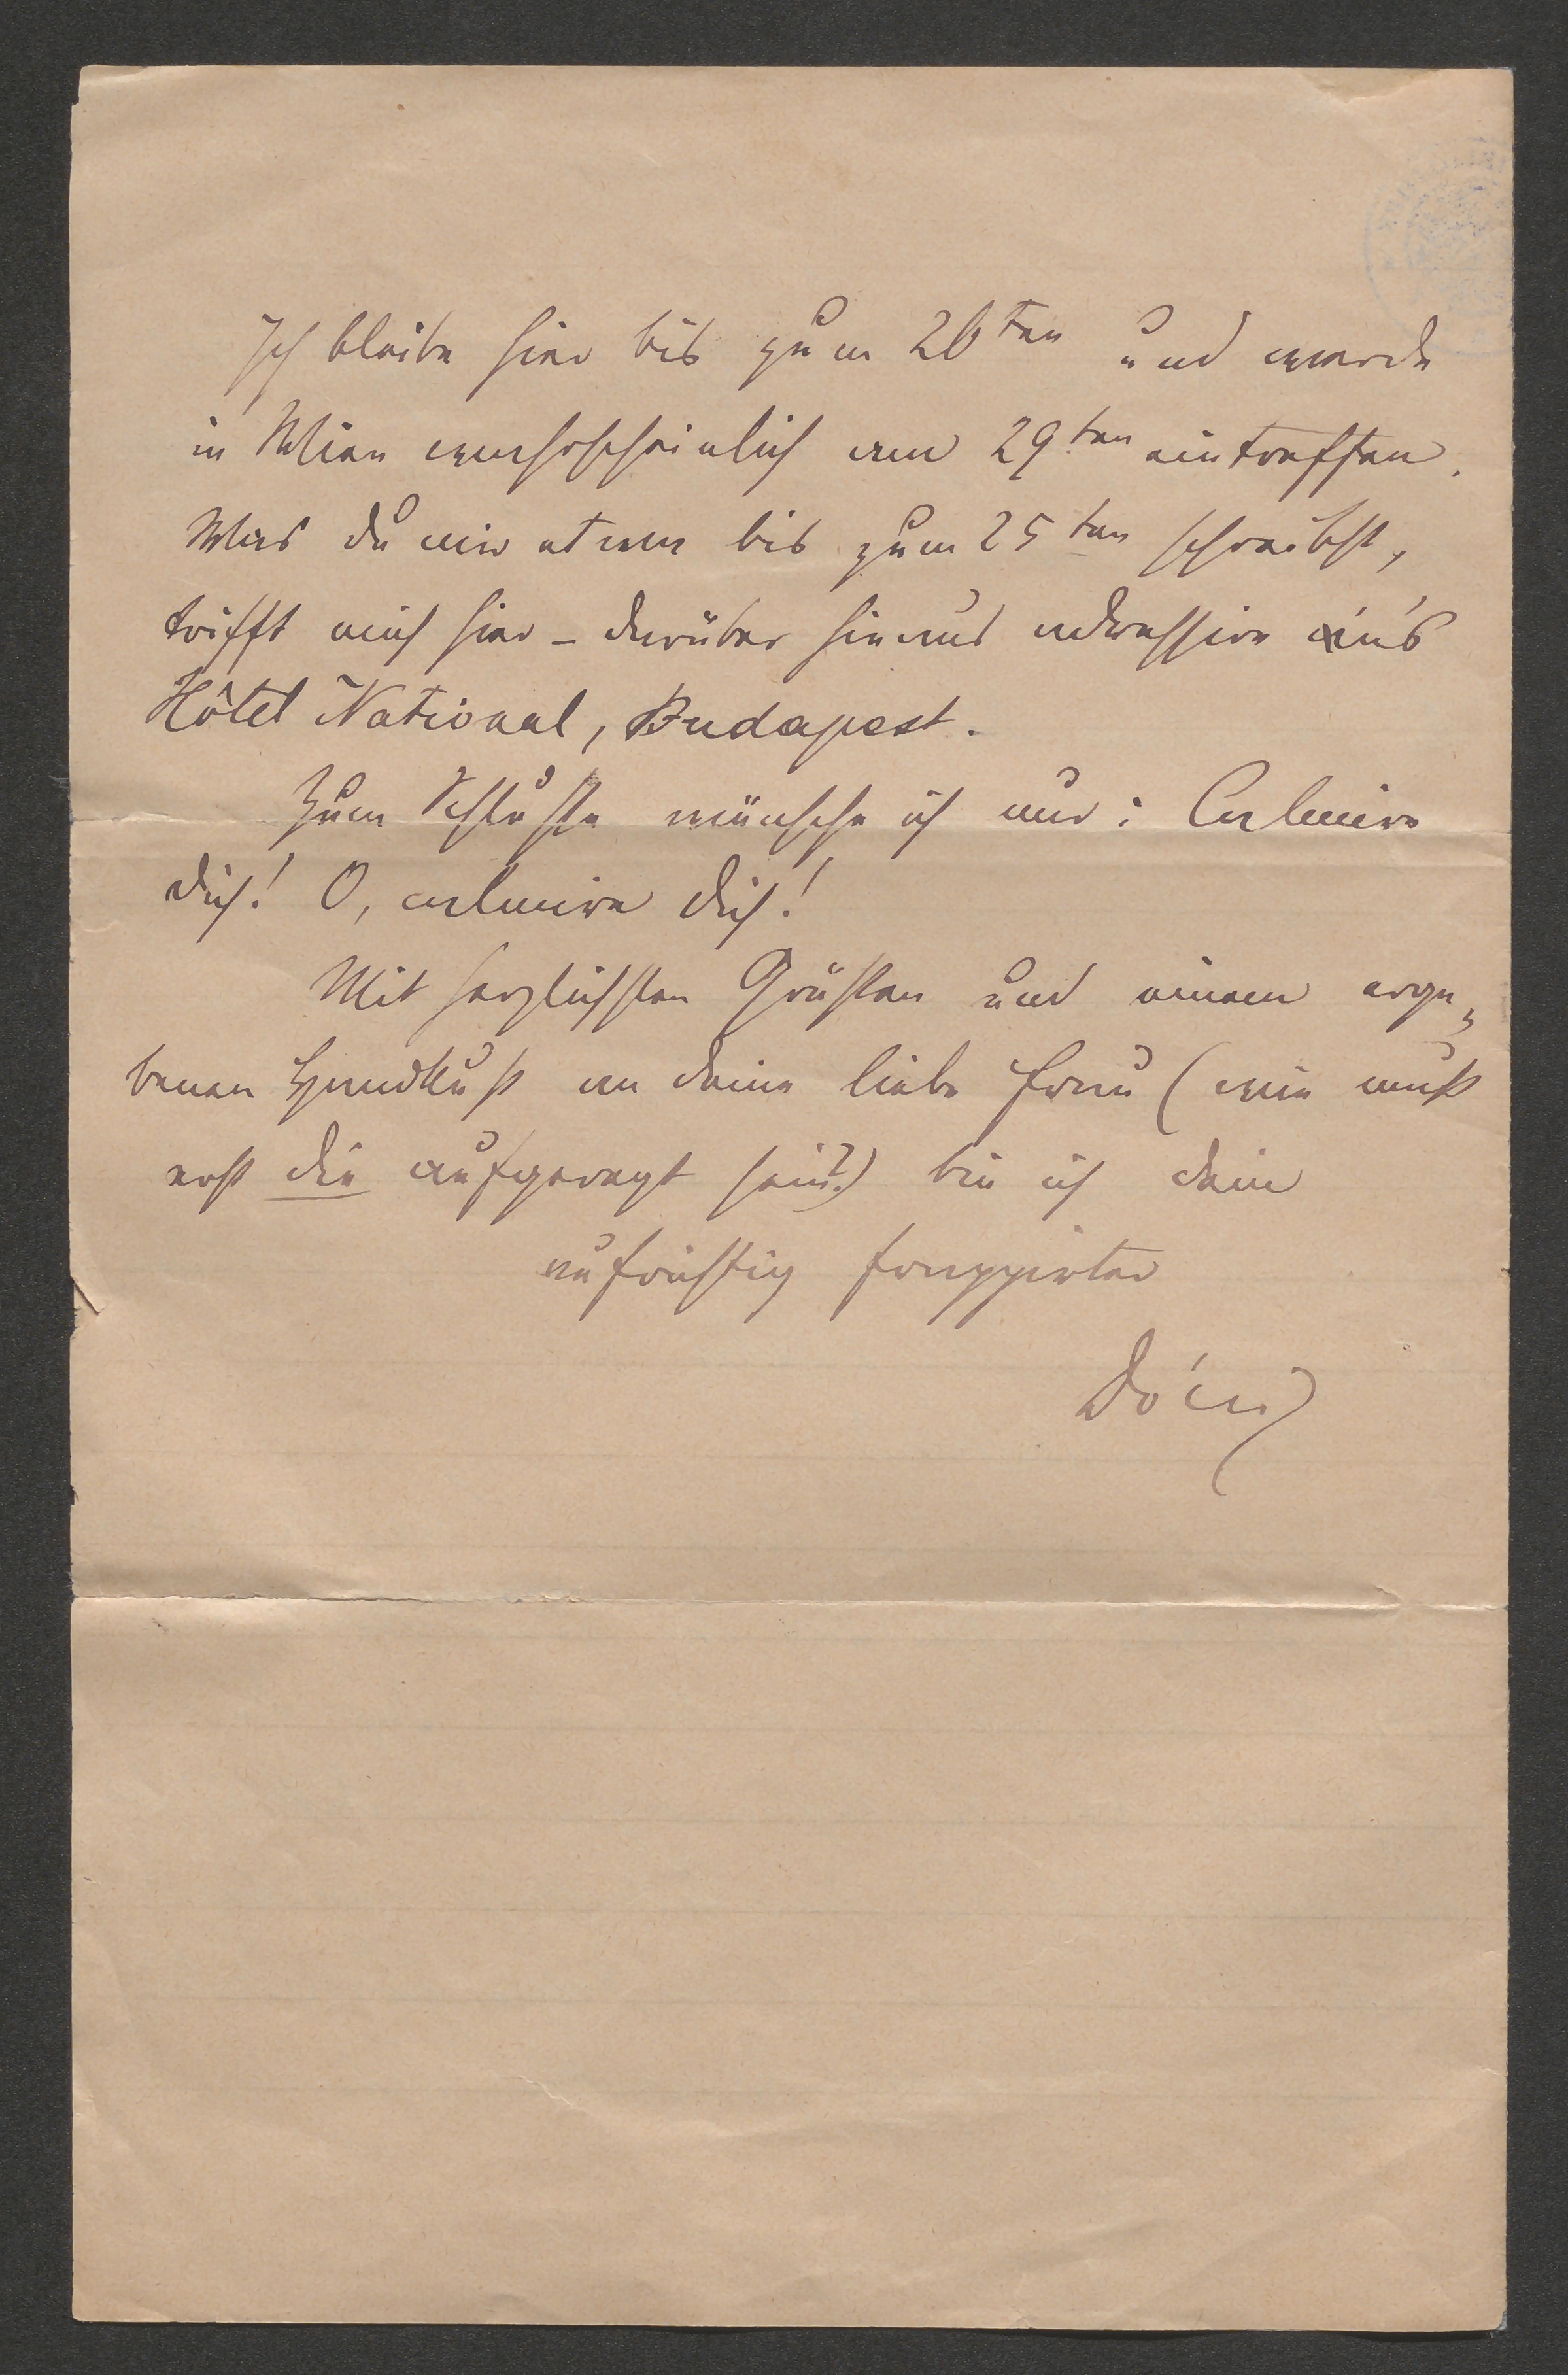 Ich bleibe hier bis zum 26ten und werde
in Wien wahrscheinlich am 29ten eintreffen.
Was du mir etwa bis zum 25ten schreibst,
trifft mich hier – darüber hinaus adressire in's
Hôtel National, Budapest.
Zum Schluße wünsche ich nur: Calmire
dich! O, calmire dich!
Mit herzlichsten Grüßen und einem erge„
benen Handkuß an deine liebe Frau (wie muß
erst die aufgeregt sein?) bin ich dein
aufrichtig frappirter
Dóczi